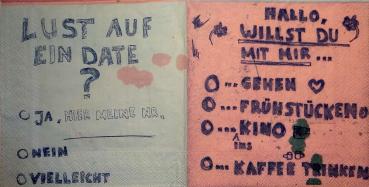 LUST AUF
EIN DATE
?
JA, HIER MEINE NR.
NEIN
VIELLEICHT
HALLO,
WILLST DU
MIT MIR...
...GEHEN
...FRÜHSTÜCKEN
...KINO
INS
...KAFFEE TRINKEN